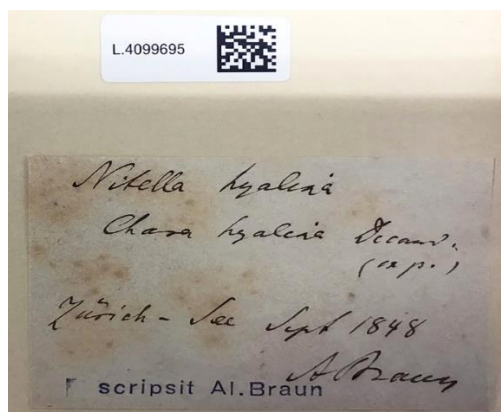 L.4099695
Nitella hyalina
Chara hyalina Decand.
(ex p.)
Zürich - See Sept 1848
A Braun
scripsit Al.Braun